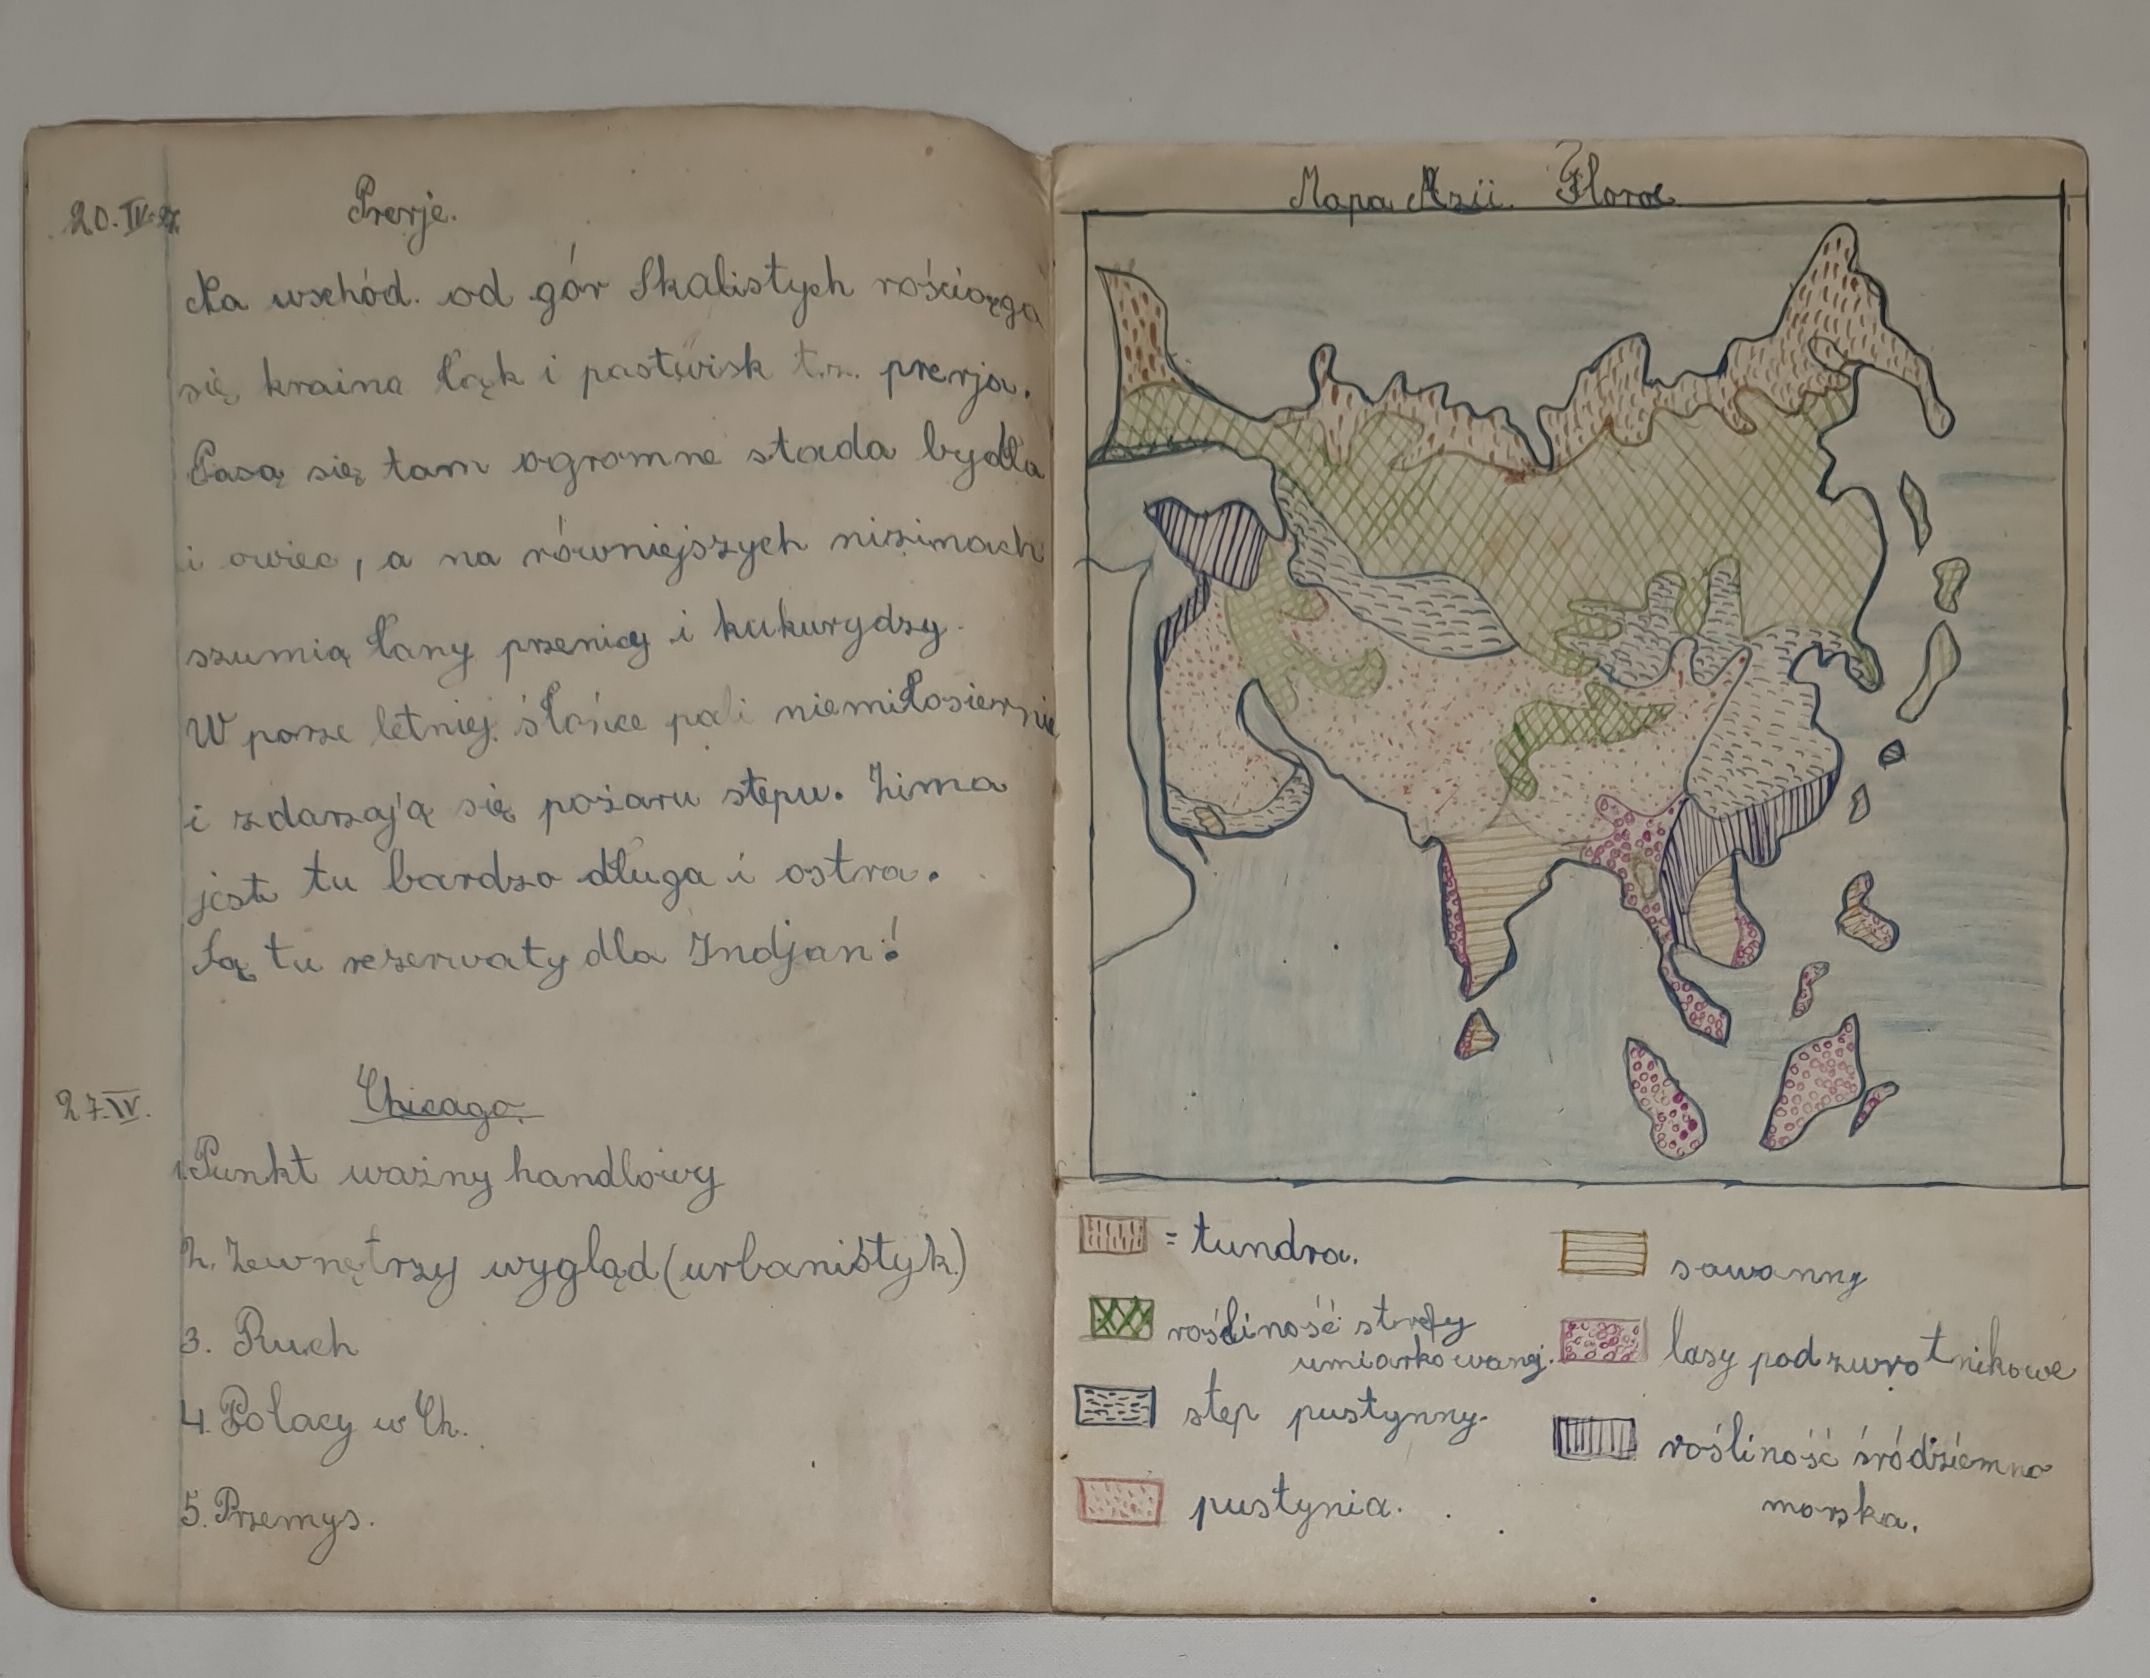 20.IV.27.
Prerje.
Na wschód. od gór Skalistych rościąga
się kraina łąk i pastwisk t.z. prerja.
Pasą się tam ogromne stada bydła
i owiec, a na równiejszych nizinach
szumią łany przenicy i kukurydzy.
W porze letniej słońce pali niemiłosiernie
i zdarzają się pożaru stepu. Zima
jest tu bardzo długa i ostra.
Są tu rezerwaty dla Indjan!
27.IV.
Chicago.
1. Punkt ważny handlowy
2. Zewnętrzy wygląd (urbanistyk.)
3. Ruch
4. Polacy w Ch.
5. Przemys.
Mapa Azii. Flora
= tundra.
rośliność strefy
umiarkowanej.
step pustynny.
pustynia.
sawanny
lasy podzwrotnikowe
rośliność śródziemno
morska.